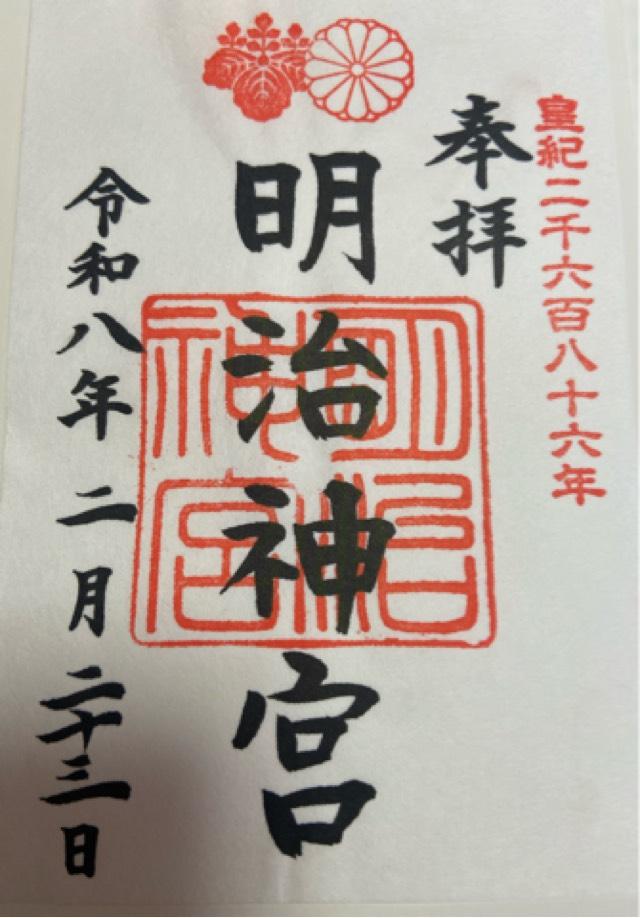 皇紀二千六百八十六年
奉拝
明治神宮
明治
神宮
令和八年二月二十三日